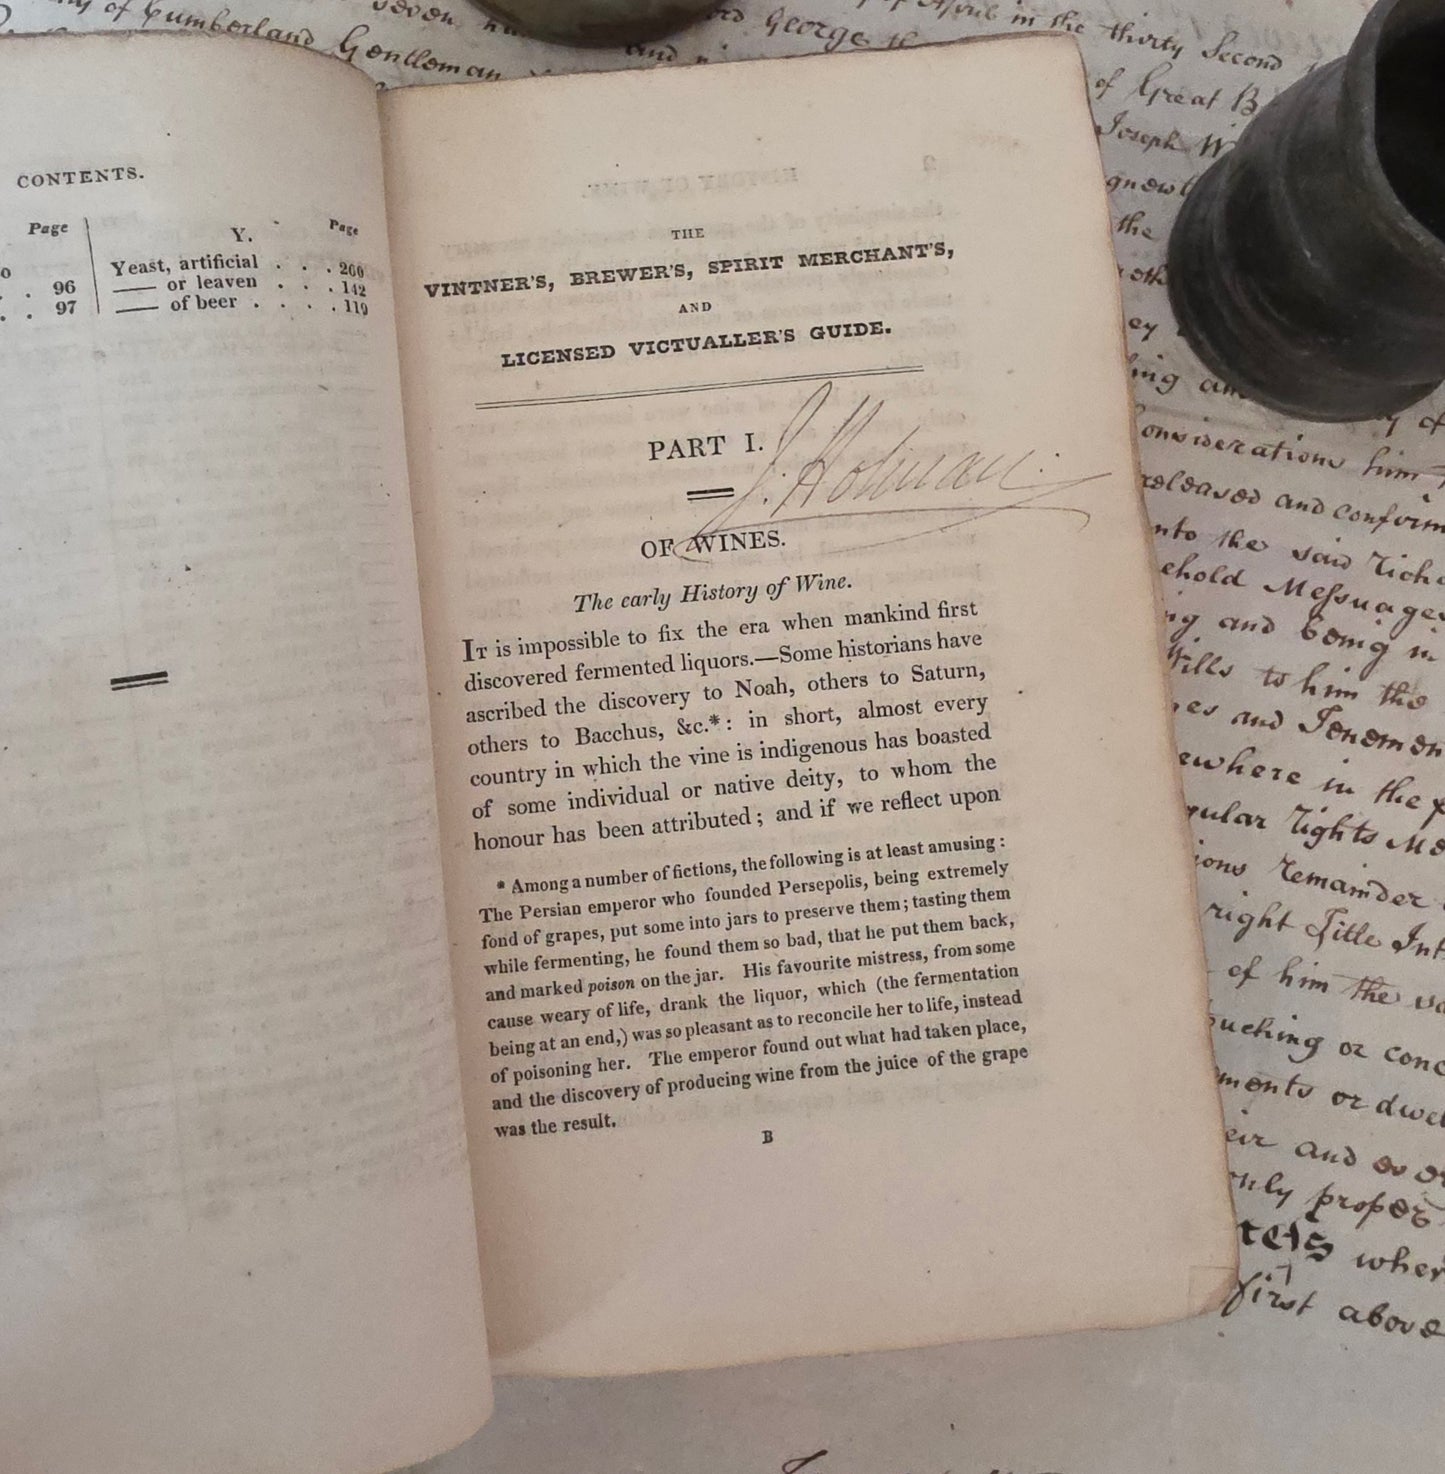 CONTENTS.
Page
96
97
Y. Page
Yeast, artificial . . . 260
—— or leaven . . . 142
—— of beer . . . . 119
THE
VINTNER'S, BREWER'S, SPIRIT MERCHANT'S,
AND
LICENSED VICTUALLER'S GUIDE.
PART I.
J. Holman
OF WINES.
The early History of Wine.
IT is impossible to fix the era when mankind first
discovered fermented liquors.—Some historians have
ascribed the discovery to Noah, others to Saturn,
others to Bacchus, &c.*: in short, almost every
country in which the vine is indigenous has boasted
of some individual or native deity, to whom the
honour has been attributed; and if we reflect upon
* Among a number of fictions, the following is at least amusing:
The Persian emperor who founded Persepolis, being extremely
fond of grapes, put some into jars to preserve them; tasting them
while fermenting, he found them so bad, that he put them back,
and marked poison on the jar. His favourite mistress, from some
cause weary of life, drank the liquor, which (the fermentation
being at an end,) was so pleasant as to reconcile her to life, instead
of poisoning her. The emperor found out what had taken place,
and the discovery of producing wine from the juice of the grape
was the result.
B
of Cumberland Gentleman
seven
and
George
of April in the thirty Second
of Great
Joseph
the
considerations him
released and confirm
unto the said
ehold Messuages
and being in
Wills to him the
and
ewhere in the
rights
remainder
right Title
of him the
or
or
and
only proper
wher
first above